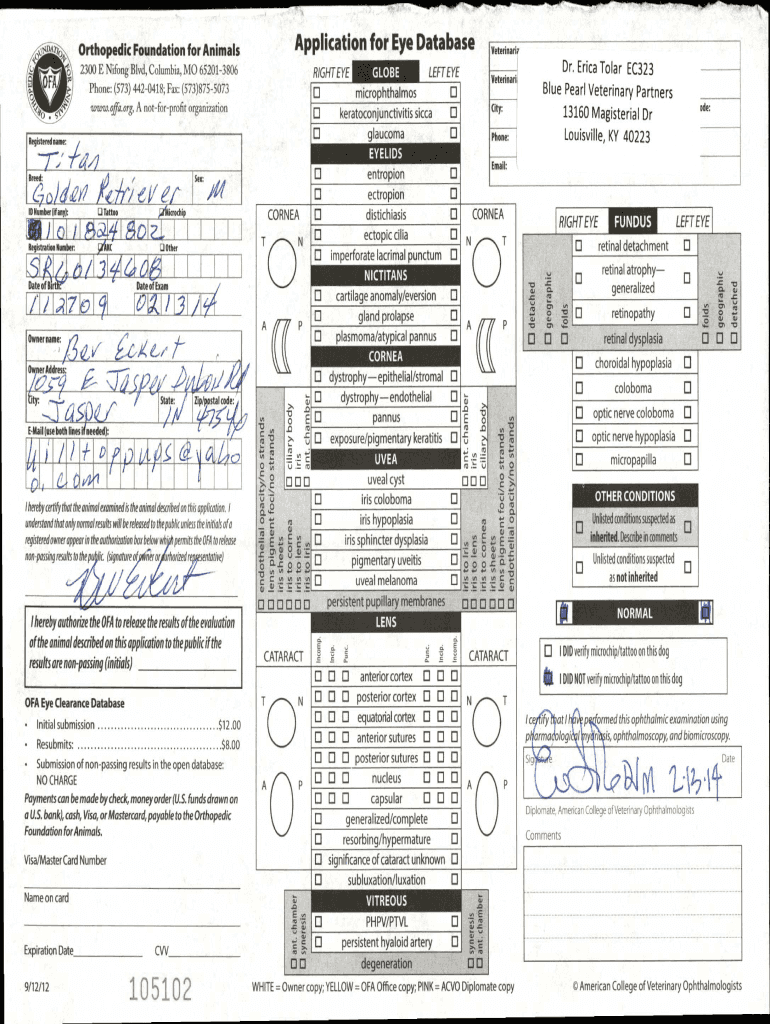 Orthopedic Foundation for Animals
2300 E Nifong Blvd, Columbia, MO 65201-3806
Phone: (573) 442-0418; Fax: (573)875-5073
www.offa.org, A not-for-profit organization
ORTHOPEDIC FOUNDATION FOR ANIMALS
OFA
Registered name:
Titan
Breed: Sex:
Golden Retriever M
ID Number (if any): Tattoo Microchip
101824802
Registration Number: AKC Other
SR60134608
Date of Birth: Date of Exam
112709 021314
Owner name:
Bev Eckert
Owner Address:
1059 E Jasper Rd
City: State: Zip/postal code:
Jasper IN 47546
E-Mail (use both lines if needed):
hilltoppups@yaho
o.com
I hereby certify that the animal examined is the animal described on this application. I
understand that only normal results will be released to the public unless the initials of a
registered owner appear in the authorization box below which permits the OFA to release
non-passing results to the public. (signature of owner or authorized representative)
Bev Eckert
I hereby authorize the OFA to release the results of the evaluation
of the animal described on this application to the public if the
results are non-passing (initials)
OFA Eye Clearance Database
• Initial submission $12.00
• Resubmits: $8.00
• Submission of non-passing results in the open database:
NO CHARGE
Payments can be made by check, money order (U.S. funds drawn on
a U.S. bank), cash, Visa, or Mastercard, payable to the Orthopedic
Foundation for Animals.
Visa/Master Card Number
Name on card
Expiration Date CVV
9/12/12 105102
Application for Eye Database
RIGHT EYE GLOBE LEFT EYE
microphthalmos
keratoconjunctivitis sicca
glaucoma
EYELIDS
entropion
ectropion
CORNEA distichiasis CORNEA
T N ectopic cilia N T
imperforate lacrimal punctum
NICTITANS
cartilage anomaly/eversion
gland prolapse
A P plasmoma/atypical pannus A P
CORNEA
dystrophy—epithelial/stromal
dystrophy—endothelial
pannus
exposure/pigmentary keratitis
UVEA
uveal cyst
iris coloboma
iris hypoplasia
iris sphincter dysplasia
pigmentary uveitis
uveal melanoma
persistent pupillary membranes
endothelial opacity/no strands
lens pigment foci/no strands
iris sheets
iris to cornea
iris to lens
iris to iris
ciliary body
iris
ant. chamber
ant. chamber
iris
ciliary body
iris to iris
iris to lens
iris to cornea
iris sheets
lens pigment foci/no strands
endothelial opacity/no strands
LENS
CATARACT Incomp. Incip. Punc. Punc. Incip. Incomp. CATARACT
anterior cortex
T N posterior cortex N T
equatorial cortex
anterior sutures
posterior sutures
A P nucleus A P
capsular
generalized/complete
resorbing/hypermature
significance of cataract unknown
subluxation/luxation
VITREOUS
PHPV/PTVL
persistent hyaloid artery
degeneration
ant. chamber
syneresis
syneresis
ant. chamber
WHITE = Owner copy; YELLOW = OFA Office copy; PINK = ACVO Diplomate copy
Veterinari
Veterinari
City: ode:
Phone:
Email:
Dr. Erica Tolar EC323
Blue Pearl Veterinary Partners
13160 Magisterial Dr
Louisville, KY 40223
RIGHT EYE FUNDUS LEFT EYE
retinal detachment
retinal atrophy—
generalized
retinopathy
retinal dysplasia
detached
geographic
folds
folds
geographic
detached
choroidal hypoplasia
coloboma
optic nerve coloboma
optic nerve hypoplasia
micropapilla
OTHER CONDITIONS
Unlisted conditions suspected as
inherited. Describe in comments
Unlisted conditions suspected
as not inherited
NORMAL
I DID verify microchip/tattoo on this dog
I DID NOT verify microchip/tattoo on this dog
I certify that I have performed this ophthalmic examination using
pharmacological mydriasis, ophthalmoscopy, and biomicroscopy.
Signature Date
2·13·14
Diplomate, American College of Veterinary Ophthalmologists
Comments
© American College of Veterinary Ophthalmologists